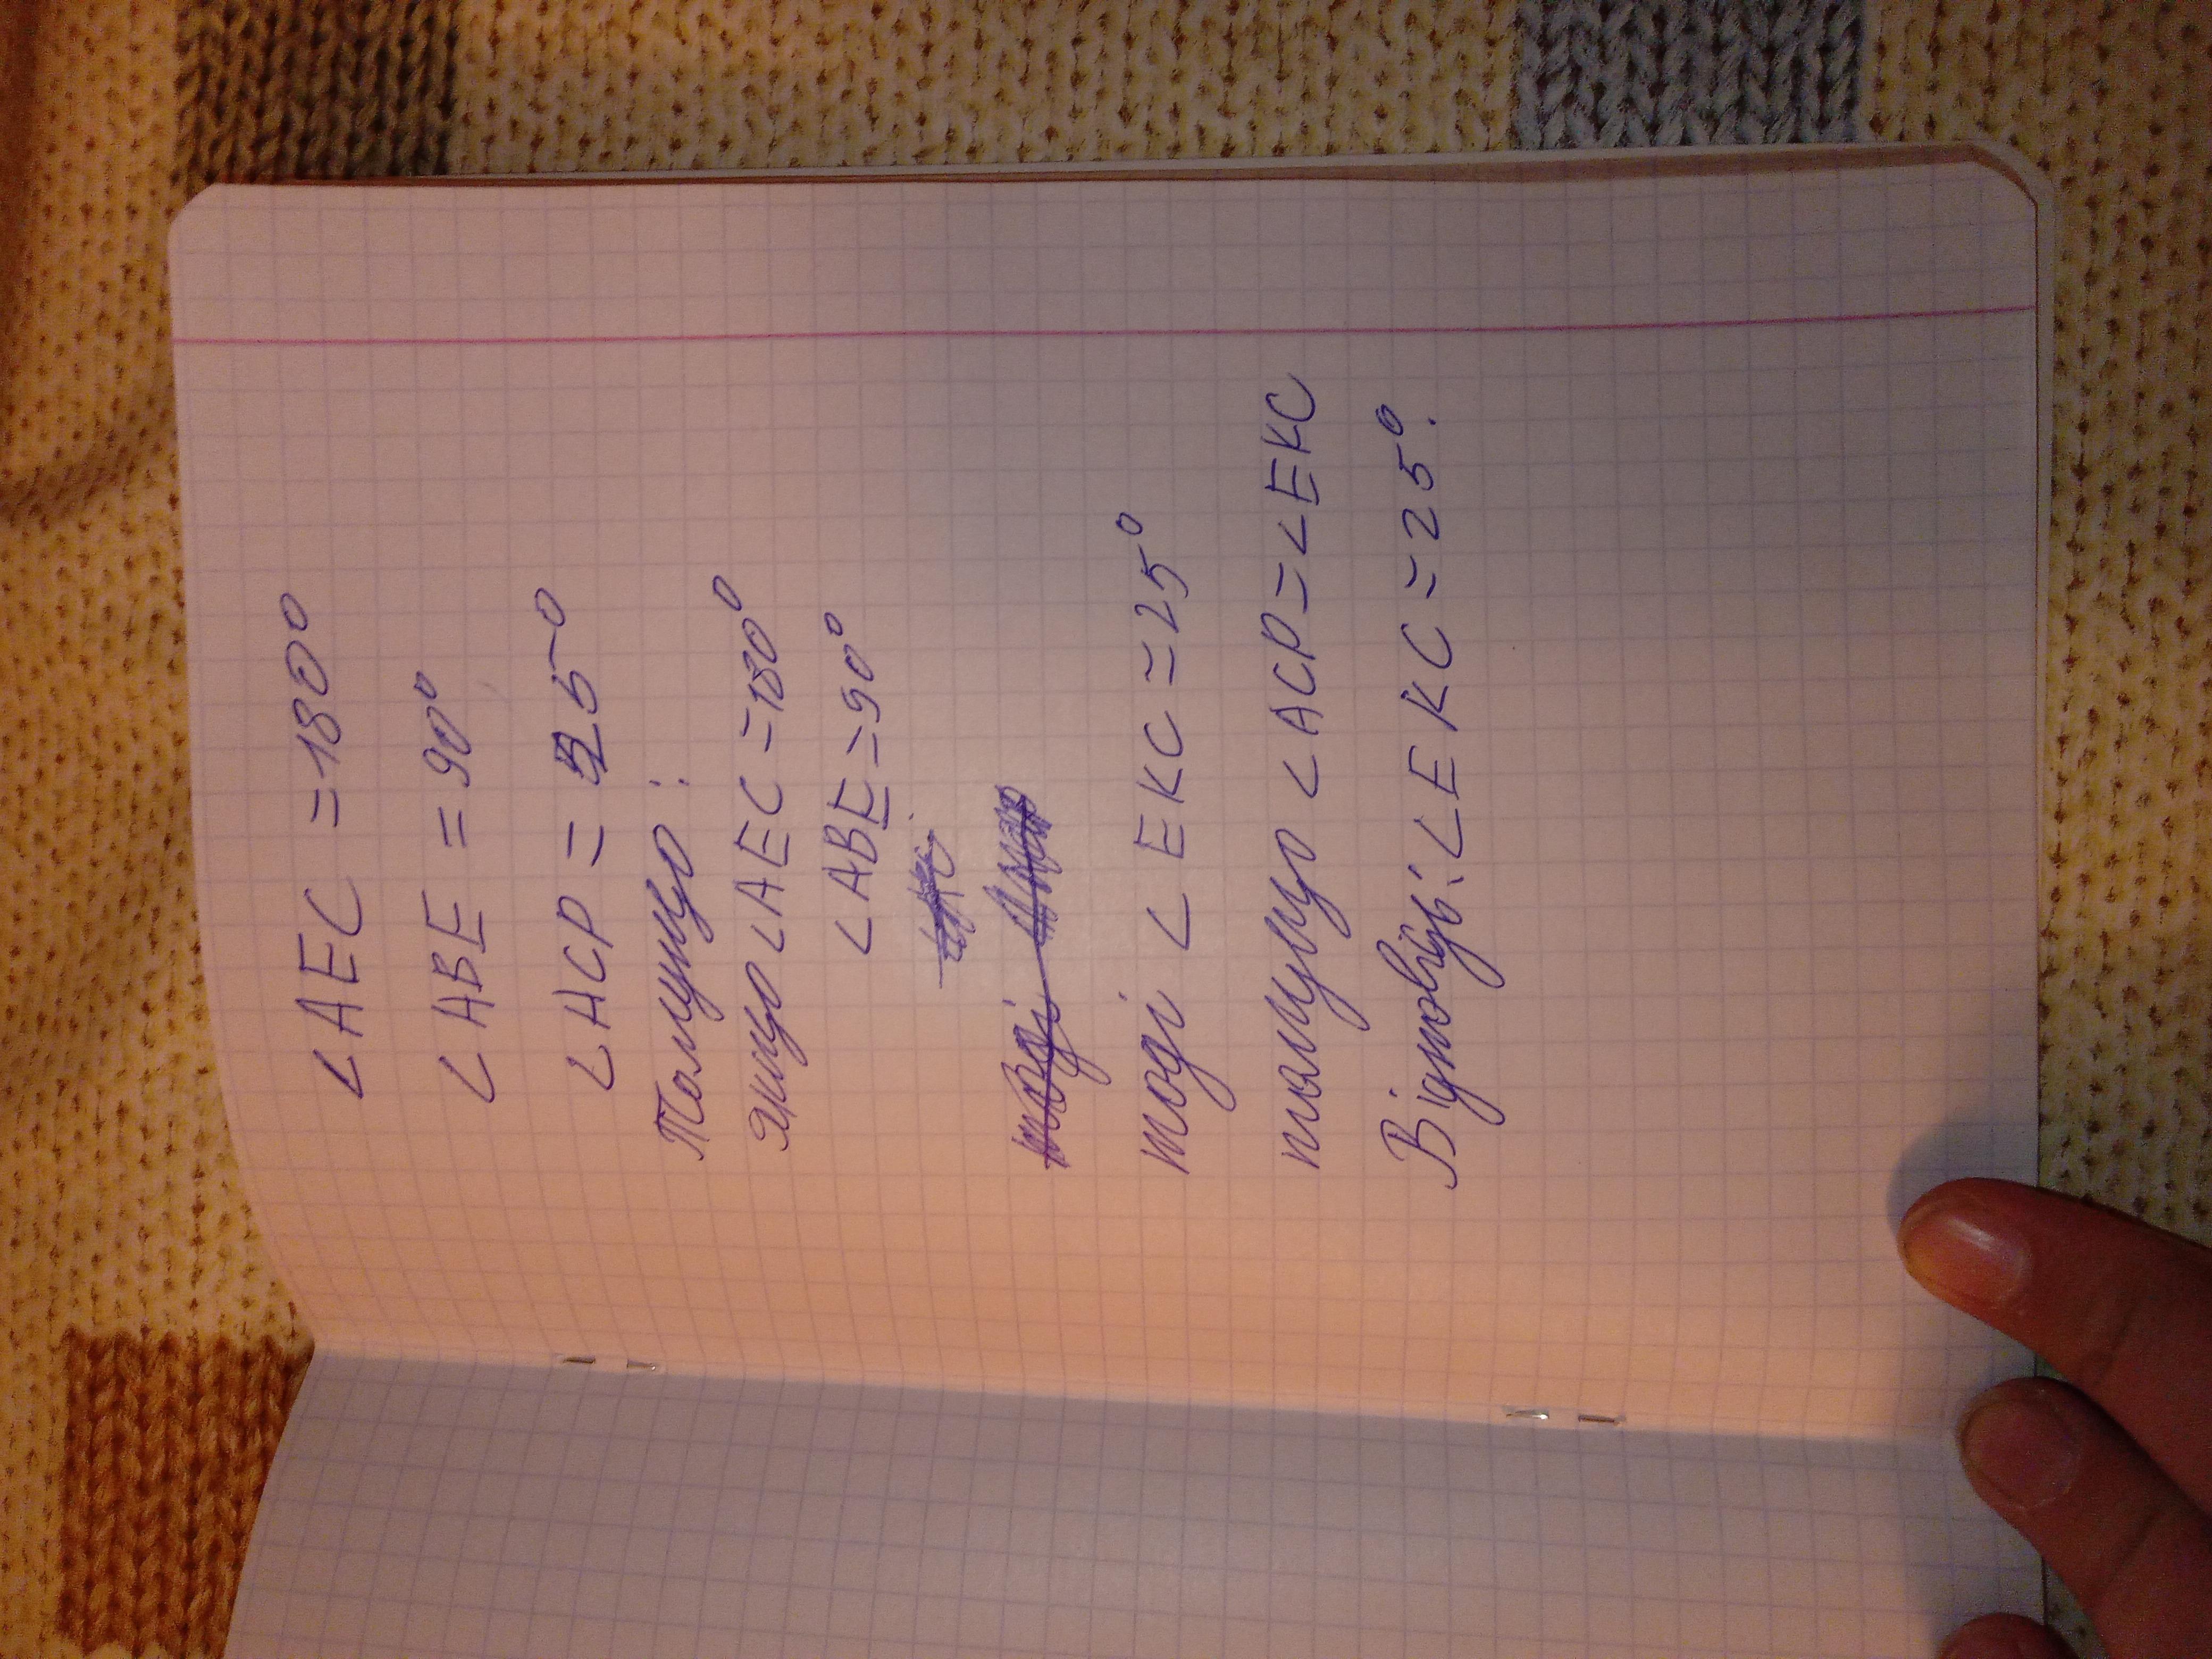 ∠AEC = 180°
∠ABE = 90°
∠ACP = 25°
Тому що:
якщо ∠AEC = 180°
∠ABE = 90°
тоді
тоді ∠EKC = 25°
тому що ∠ACP = ∠EKC
Відповідь: ∠EKC = 25°.